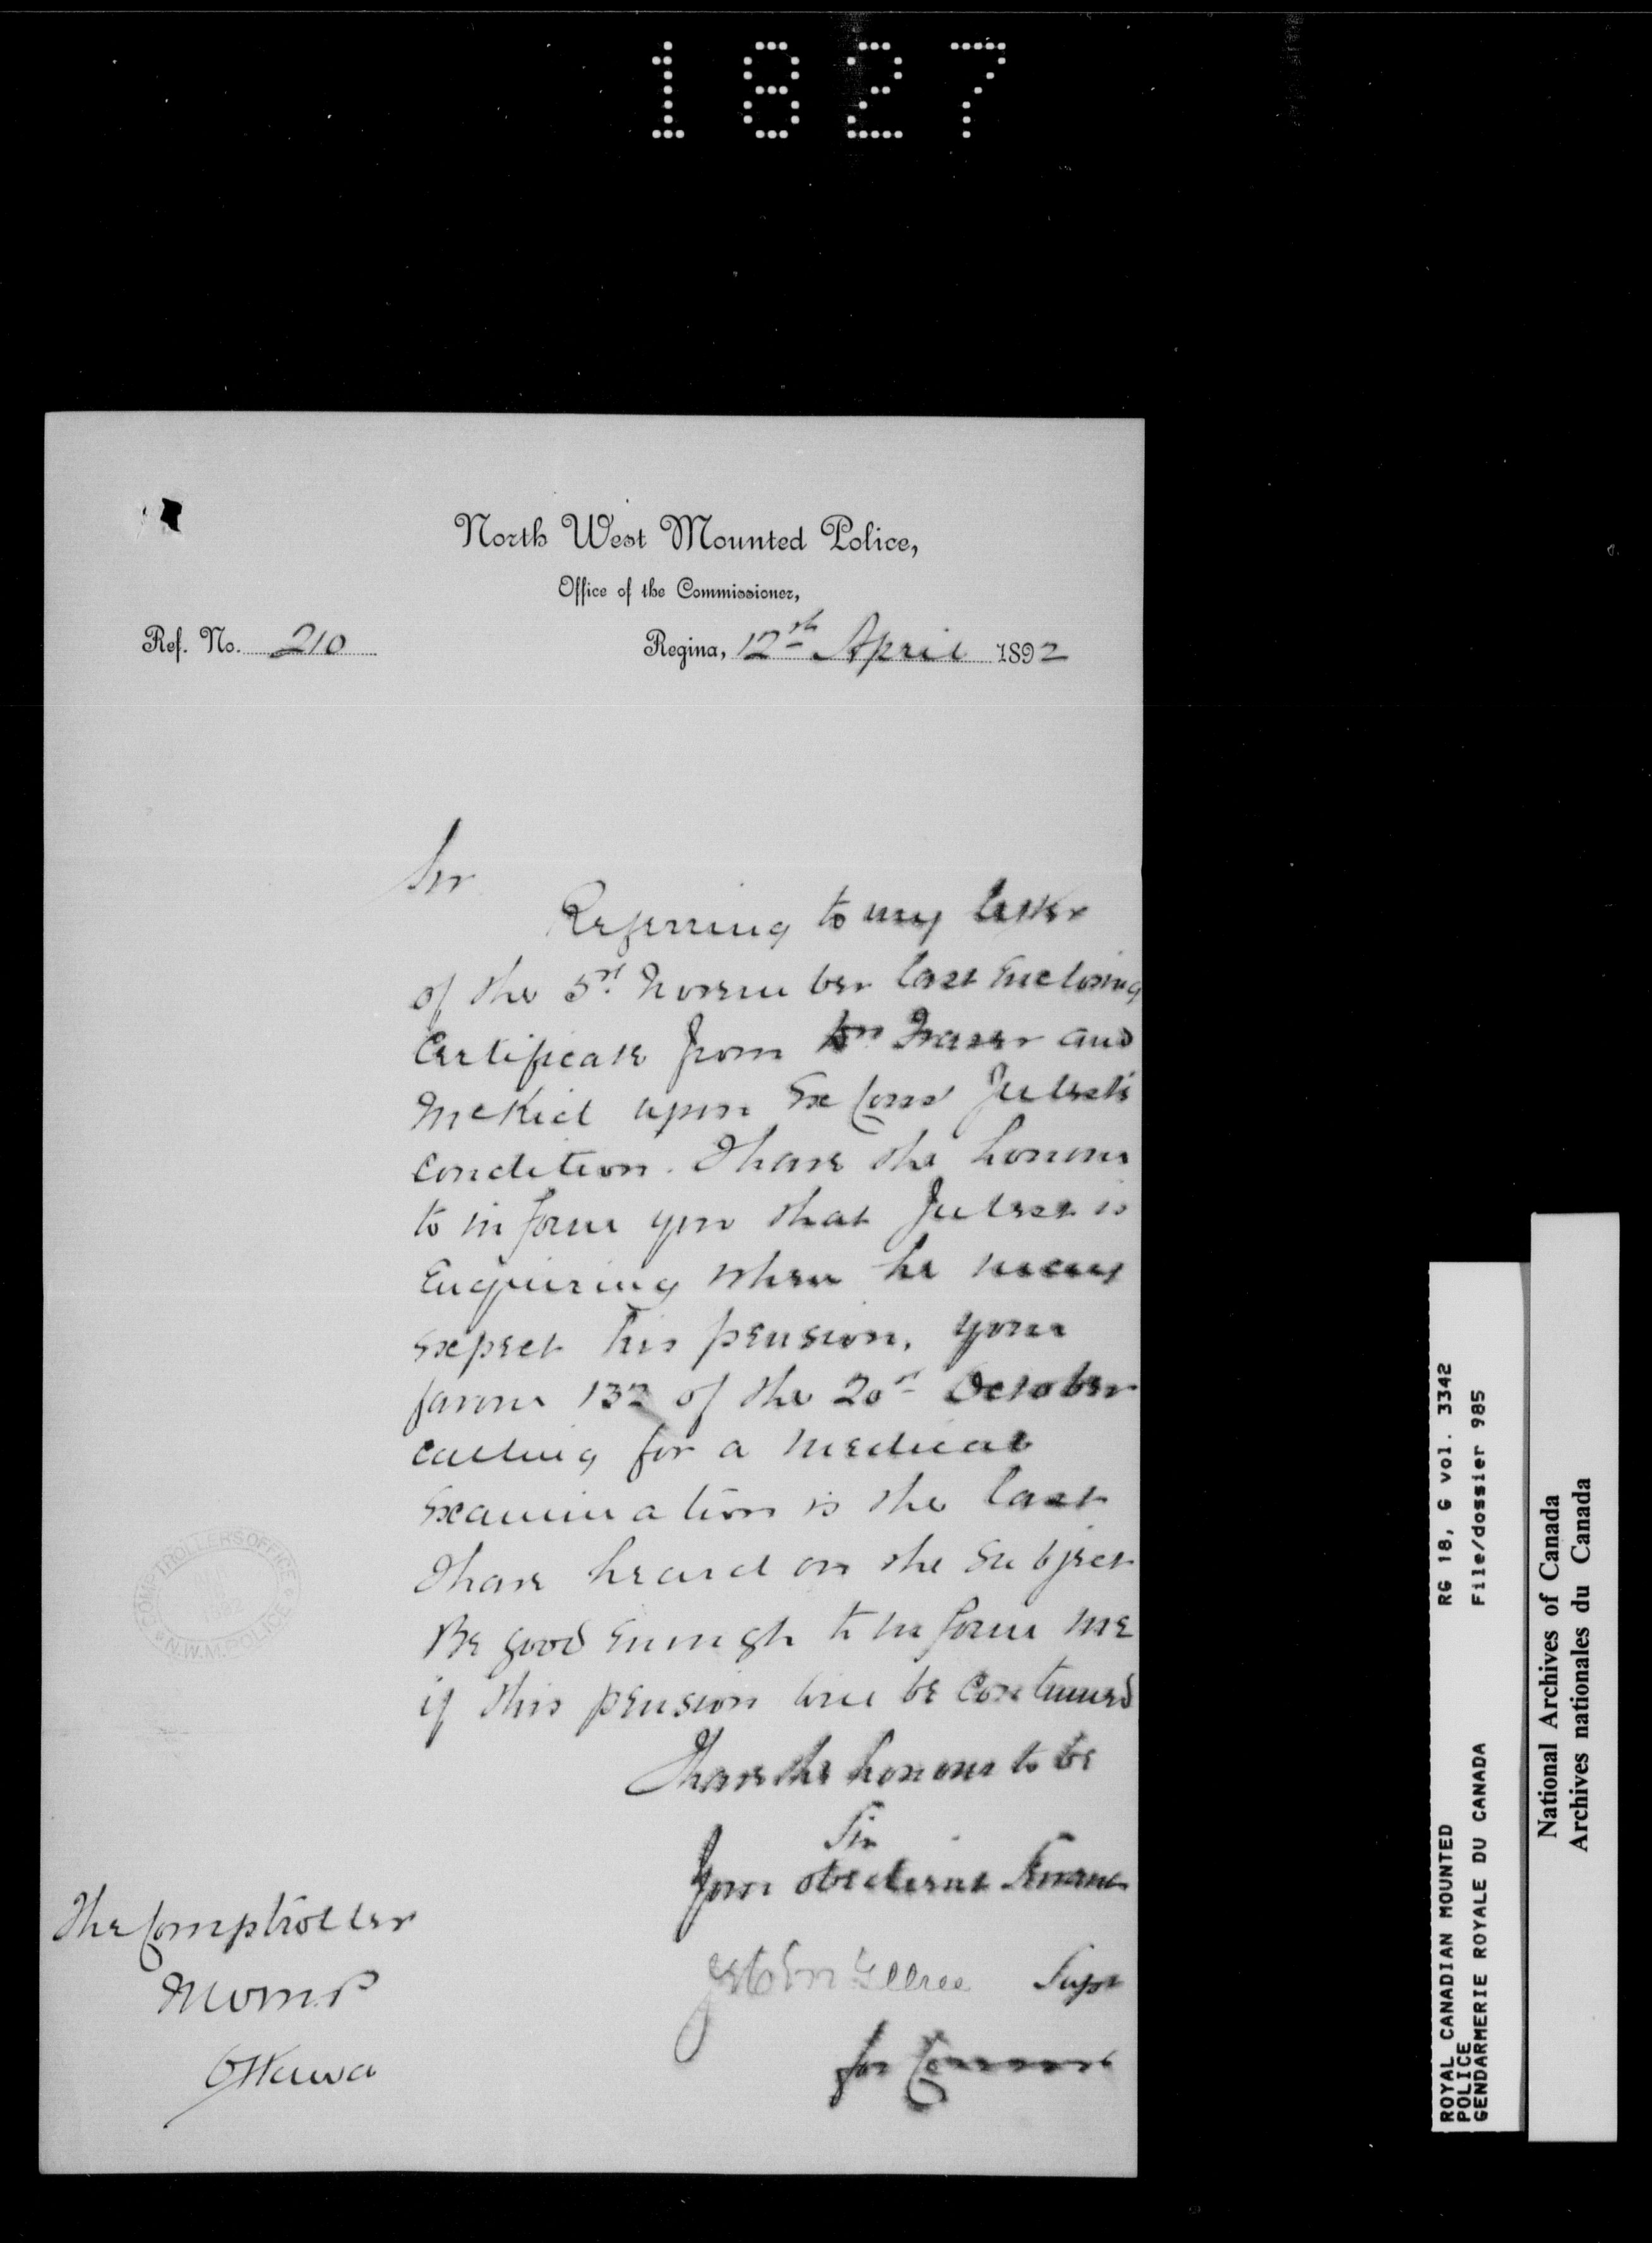 1827
North West Mounted Police,
Office of the Commissioner,
Ref. No. 210
Regina, 12th April 1892
Sir
Referring to my letter
of the 3rd November last Enclosing
Certificate from Drs Fraser and
McKid upon Ex Const
condition. I have the honour
to inform you that is
Enquiring when he may
expect his pension, your
favour 132 of the 20th October
calling for a medical
Examination is the last
I have heard on the subject
Be good enough to inform me
if this pension will be continued
I have the honour to be
Sir
Your obedient Servant
Supt
for Commr
The Comptroller
NWMP
Ottawa
COMPTROLLERS OFFICE
1892
N.W.M. POLICE
ROYAL CANADIAN MOUNTED
POLICE
GENDARMERIE ROYALE DU CANADA
RG 18, G vol. 3342
File/dossier 985
National Archives of Canada
Archives nationales du Canada